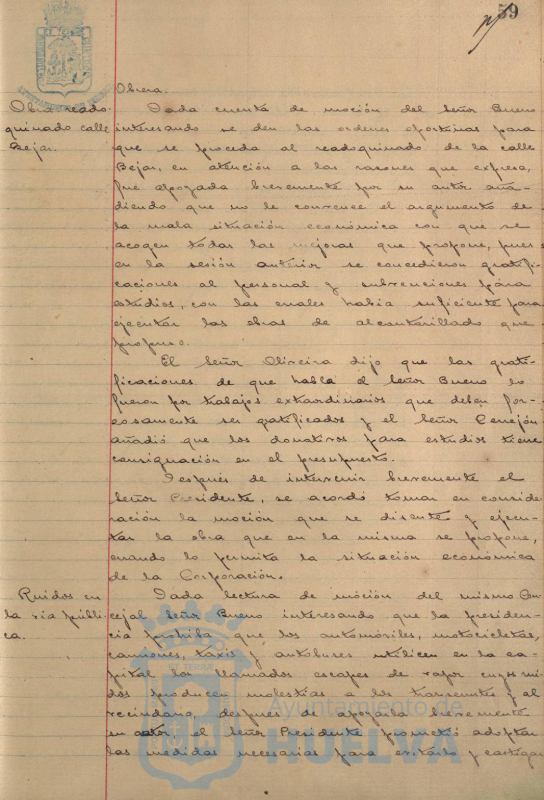 59
Obrera.
Obra readoquinado calle Bejar.
Dada cuenta de moción del Señor Bueno
interesando se den las ordenes oportunas para
que se proceda al readoquinado de la calle
Bejar, en atención a las razones que expresa,
fue apoyada brevemente por su autor aña-
diendo que no le convence el argumento de
la mala situación económica con que se
acogen todas las mejoras que propone, pues
en la sesión anterior se concedieron gratifi-
caciones al personal y subvenciones para
estudios, con las cuales habia suficiente para
ejecutar las obras de alcantarillado que
propuso.
El Señor Oliveira dijo que las grati-
ficaciones de que habla el Señor Bueno lo
fueron por trabajos extraordinarios que deben for-
zosamente ser gratificados y el Señor Cerejón
añadió que los donativos para estudios tiene
consignación en el presupuesto.
Después de intervenir brevemente el
Señor Presidente, se acordó tomar en conside-
ración la moción que se discute y ejecu-
tar la obra que en la misma se propone,
cuando lo permita la situación económica
de la Corporación.
Ruidos en
la via públi-
ca.
Dada lectura de moción del mismo Con-
cejal Señor Bueno interesando que la presiden-
cia prohiba que los automóviles, motocicletas,
camiones, taxis y autobuses utilicen en la ca-
pital los llamados escapes de vapor cuyos rui-
dos producen molestias a los transeuntes y al
vecindario, después de apoyarla brevemente
su autor, el Señor Presidente prometió adoptar
las medidas necesarias para evitarlo y castigar
Ayuntamiento de
HUELVA